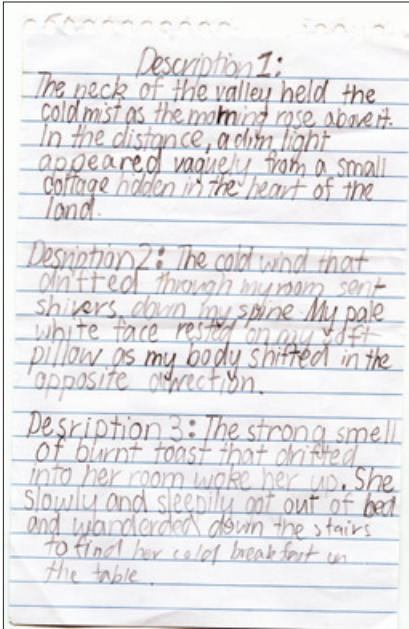 Description 1:
The neck of the valley held the
cold mist as the morning rose above it.
In the distance, a dim light
appeared vaguely from a small
cottage hidden in the heart of the
land.
Desription 2: The cold wind that
drifted through my room sent
shivers down my spine. My pale
white face rested on my soft
pillow as my body shifted in the
opposite direction.
Desription 3: The strong smell
of burnt toast that drifted
into her room woke her up. She
slowly and sleepily got out of bed
and wanderded down the stairs
to find her cold breakfast on
the table.